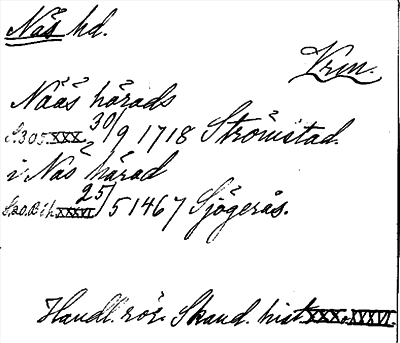 Näs hd.
Vrm.
Nääs härads
S.305. XXX. 30/9 1718 Strömstad.
i Näs härad
S.20. Bih. XXXVI 25/5 1467 Sjögerås.
Handl. rör. Skand. hist. XXX. XXXVI.